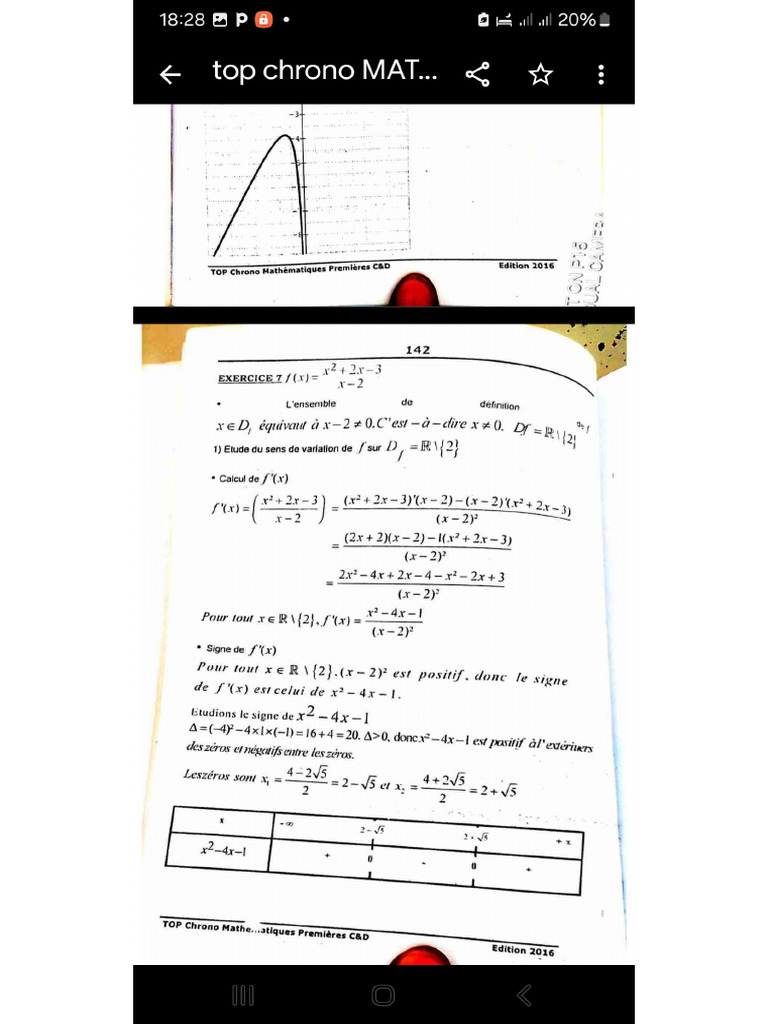 18:28 P 20%
top chrono MAT...
-3
-4
TOP Chrono Mathématiques Premières C&D Edition 2016
142
EXERCICE 7 f(x) = (x² + 2x − 3)/(x − 2)
• L'ensemble de définition
x ∈ D_f équivaut à x − 2 ≠ 0. C'est − à − dire x ≠ 0. Df = ℝ \ {2}
1) Etude du sens de variation de f sur D_f = ℝ \ {2}
• Calcul de f'(x)
f'(x) = ((x² + 2x − 3)/(x − 2)) = ((x² + 2x − 3)'(x − 2) − (x − 2)'(x² + 2x − 3))/(x − 2)²
= ((2x + 2)(x − 2) − 1(x² + 2x − 3))/(x − 2)²
= (2x² − 4x + 2x − 4 − x² − 2x + 3)/(x − 2)²
Pour tout x ∈ ℝ \ {2}, f'(x) = (x² − 4x − 1)/(x − 2)²
• Signe de f'(x)
Pour tout x ∈ ℝ \ {2}. (x − 2)² est positif, donc le signe
de f'(x) est celui de x² − 4x − 1.
Etudions le signe de x² − 4x − 1
Δ = (−4)² − 4×1×(−1) = 16 + 4 = 20. Δ > 0, donc x² − 4x − 1 est positif à l'extériuers
des zéros et négatifs entre les zéros.
Les zéros sont x₁ = (4 − 2√5)/2 = 2 − √5 et x₂ = (4 + 2√5)/2 = 2 + √5
x -∞ 2 − √5 2 + √5 + x
x² − 4x − 1 + 0 - 0 +
TOP Chrono Mathe...atiques Premières C&D Edition 2016